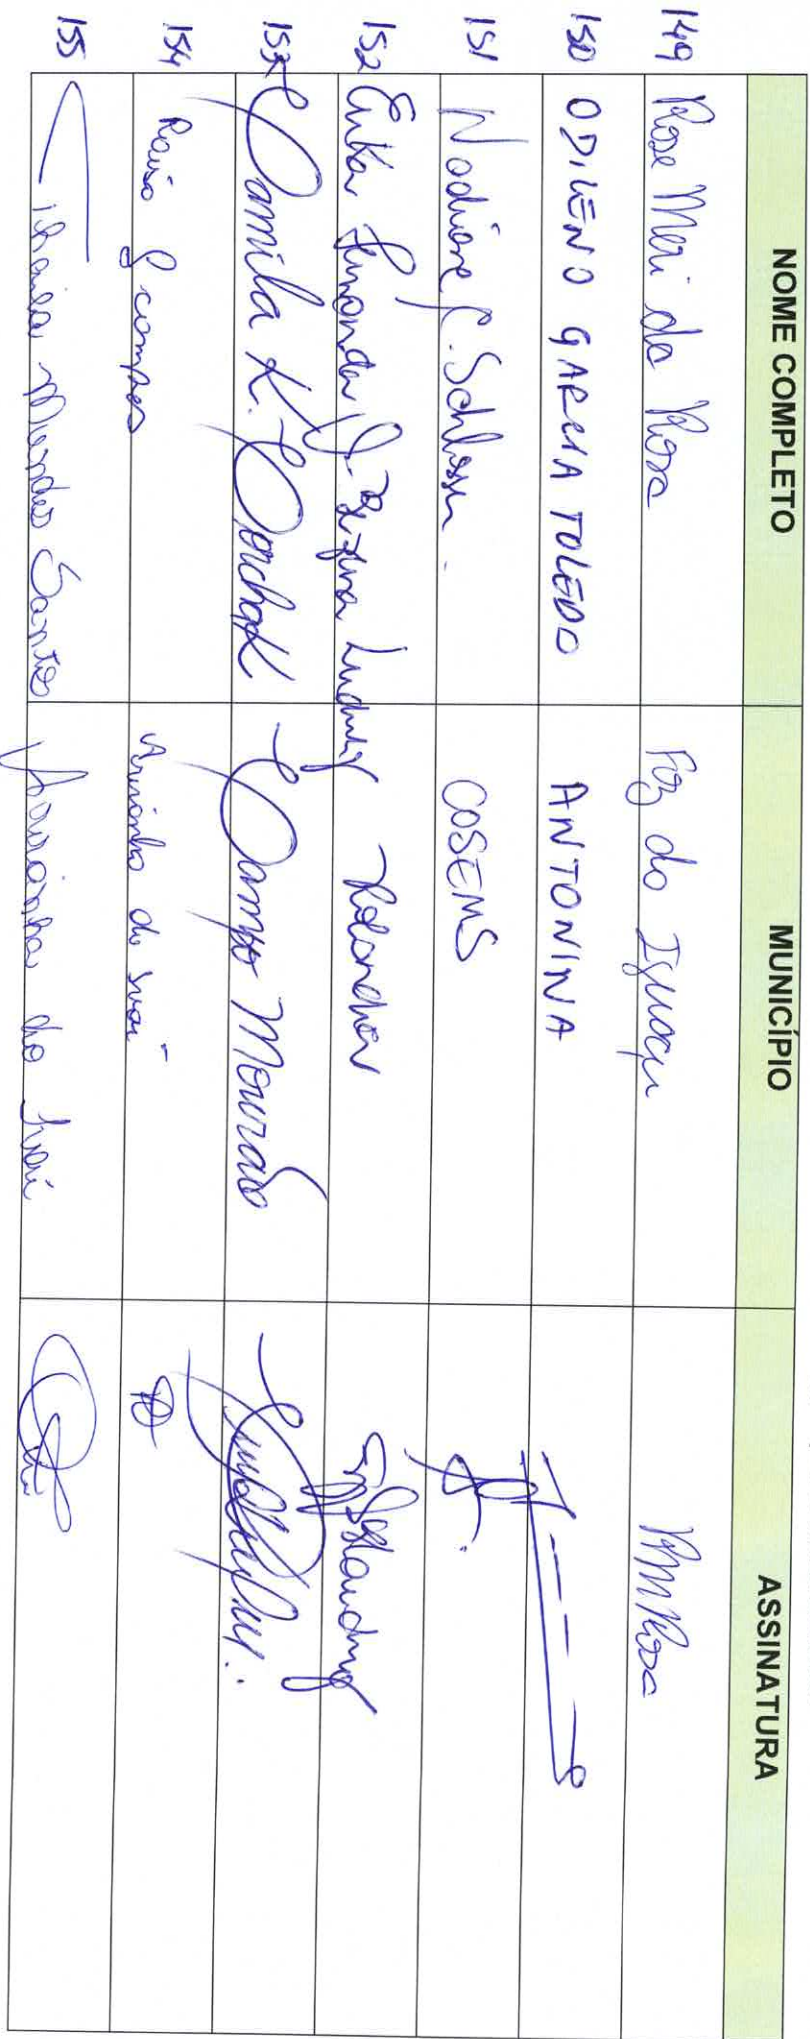 NOME COMPLETO MUNICÍPIO ASSINATURA
149 Rose Meri da Rosa Foz do Iguaçu RMRosa
150 ODILENO GARCIA TOLEDO ANTONINA
151 Nadiane C. Schlosser COSEMS
152 Erika Fernanda Ludwig Rolandia
153 Camila K. Corchak Campo Mourão
154 G campos Ariranha do Ivaí
155 Thaila Mendes Santos Ariranha do Ivaí